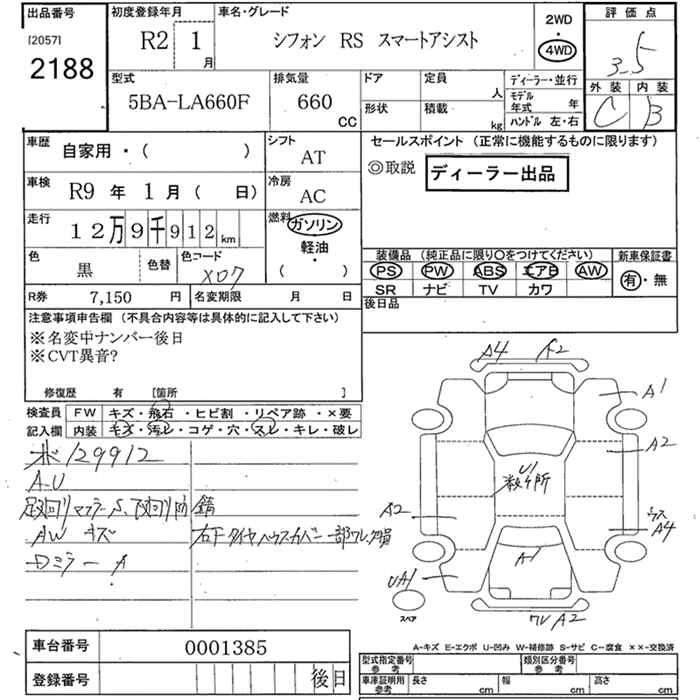 出品番号 初度登録年月 車名・グレード 2WD 評価点
[2057] R2 1 月 シフォン RS スマートアシスト ・ 3.5
2188 4WD
型式 排気量 ドア 定員 人 ディーラー・並行 外装 内装
5BA-LA660F 660 CC 形状 積載 kg モデル年式 年 C B
ハンドル 左・右
車歴 自家用・( ) シフト AT セールスポイント (正常に機能するものに限ります)
◎取説 ディーラー出品
車検 R9 年 1 月 ( 日) 冷房 AC
走行 12万9千912 km 燃料 ガソリン・軽油・( )
色 黒 色替 色コード X07 装備品 (純正品に限り○をつけてください) 新車保証書
PS PW ABS エアB AW 有・無
R券 7,150 円 名変期限 月 日 SR ナビ TV カワ
後日品
注意事項申告欄 (不具合内容等は具体的に記入して下さい)
※名変中ナンバー後日
※CVT異音?
修復歴 有 [箇所 ]
検査員 FW キズ・飛石・ヒビ割・リペア跡・×要
記入欄 内装 キズ・汚レ・コゲ・穴・スレ・キレ・破レ
129912
A.U
マフラーS、 錆
AW キズ 右F タイヤハウスカバー一部ワレ欠損
Dミラー A
A4 A2
A1
A2
U1
数ヶ所
A2
A4
A1
UA1
スペア
ワレ A2
A-キズ E-エクボ U-凹み W-補修跡 S-サビ C-腐食 ××-交換済
車台番号 0001385
型式指定番号 参考 類別区分番号 参考
登録番号 後日
車庫証明用 参考 長さ cm 幅 cm 高さ cm